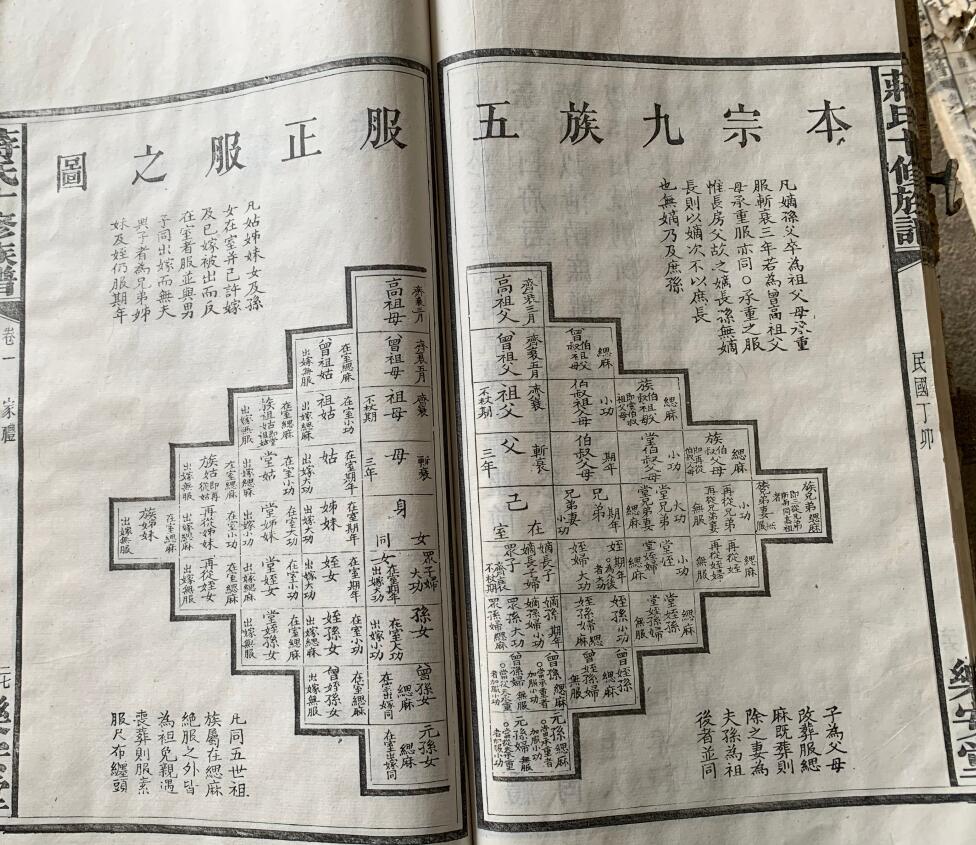 本宗九族五服正服之圖
凡嫡孫父卒為祖父母承重
服斬衰三年若為曾高祖父
母承重服亦同○承重之服
惟長房父故之嫡長孫無嫡
長則以嫡次不以庶長
也無嫡乃及庶孫
凡姑姊妹女及孫
女在室并已許嫁
及已嫁被出而反
在室者服並與男
子同出嫁而無夫
與子者為兄弟姊
妹及姪仍服期年
高祖父
齊衰三月
高祖母
齊衰三月
曾祖父
齊衰五月
曾伯叔祖父母
緦麻
曾祖母
齊衰五月
曾祖姑
在室緦麻
出嫁無服
祖父
齊衰
不杖期
伯叔祖父母
小功
緦麻
祖母
齊衰
不杖期
祖姑
在室小功
出嫁緦麻
在室緦麻
出嫁無服
父
斬衰
三年
伯叔父母
期年
堂伯叔父母
小功
族伯叔父母
緦麻
母
斬衰
三年
姑
在室期年
出嫁大功
堂姑
在室小功
出嫁緦麻
族姑
在室緦麻
出嫁無服
己
在室
兄弟
期年
兄弟妻
小功
堂兄弟
大功
堂兄弟妻
緦麻
再從兄弟
小功
再從兄弟妻
無服
族兄弟
緦麻
族兄弟妻
無服
身
女
同
姊妹
在室期年
出嫁大功
堂姊妹
在室大功
出嫁小功
再從姊妹
在室小功
出嫁緦麻
族姊妹
在室緦麻
出嫁無服
嫡長子
嫡長子婦
眾子
不杖期
姪
期年
姪婦
大功
堂姪
小功
堂姪婦
緦麻
再從姪
緦麻
再從姪婦
無服
眾子婦
大功
女
在室期年
出嫁大功
姪女
在室期年
出嫁大功
堂姪女
在室小功
出嫁緦麻
再從姪女
在室緦麻
出嫁無服
嫡孫
期年
嫡孫婦
小功
眾孫
大功
眾孫婦
緦麻
姪孫
小功
姪孫婦
緦麻
堂姪孫
緦麻
堂姪孫婦
無服
孫女
在室大功
出嫁小功
姪孫女
在室小功
出嫁緦麻
堂姪孫女
在室緦麻
出嫁無服
曾孫
緦麻
曾孫婦
無服
曾姪孫
緦麻
曾姪孫婦
無服
曾孫女
緦麻
在室出嫁同
曾姪孫女
在室緦麻
出嫁無服
元孫
緦麻
元孫婦
無服
元孫女
緦麻
在室出嫁同
子為父母
改葬服緦
麻既葬則
除之妻為
夫孫為祖
後者並同
凡同五世祖
族屬在緦麻
絕服之外皆
為祖免親遇
喪葬則服素
服尺布纏頭
民國丁卯
卷一
家禮